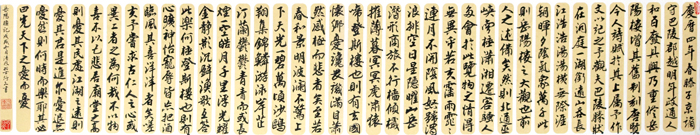 慶曆四年春滕子京謫
守巴陵郡越明年政通人
和百廢具興乃重修岳
陽樓增其舊制刻唐賢
今人詩賦於其上屬予作
文以記之予觀夫巴陵勝狀
在洞庭一湖銜遠山吞長
江浩浩湯湯橫無際涯
朝暉夕陰氣象萬千此
則岳陽樓之大觀也前
人之述備矣然則北通巫
峽南極瀟湘遷客騷人多
會於此覽物之情得無
異乎若夫霪雨霏霏
連月不開陰風怒號濁
浪排空日星隱曜山岳
潛形商旅不行檣傾楫
摧薄暮冥冥虎嘯猿啼
登斯樓也則有去國
懷鄉憂讒畏譏滿目蕭
然感極而悲者矣至若
春和景明波瀾不驚上下
天光一碧萬頃沙鷗
翔集錦鱗游泳岸芷
汀蘭郁郁青青而或長
煙一空皓月千里浮光躍
金靜影沉璧漁歌互答
此樂何極登斯樓也則有
心曠神怡寵辱皆忘把酒
臨風其喜洋洋者矣嗟夫
予嘗求古仁人之心或
異二者之為何哉不以物
喜不以己悲居廟堂之高
則憂其民處江湖之遠則
憂其君是進亦憂退亦
憂然則何時而樂耶其必
曰先天下之憂而憂